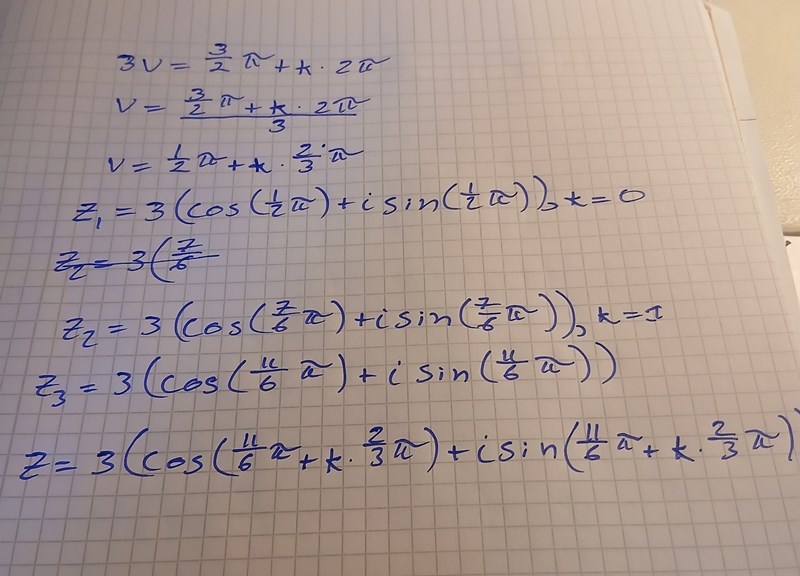 3v = 3/2 π + k · 2π
v = (3/2 π + k · 2π)/3
v = 1/2 π + k · 2/3 π
z₁ = 3(cos(1/2 π) + i sin(1/2 π)), k = 0
z₂ = 3(7/6
z₂ = 3(cos(7/6 π) + i sin(7/6 π)), k = 1
z₃ = 3(cos(11/6 π) + i sin(11/6 π))
z = 3(cos(11/6 π + k · 2/3 π) + i sin(11/6 π + k · 2/3 π)